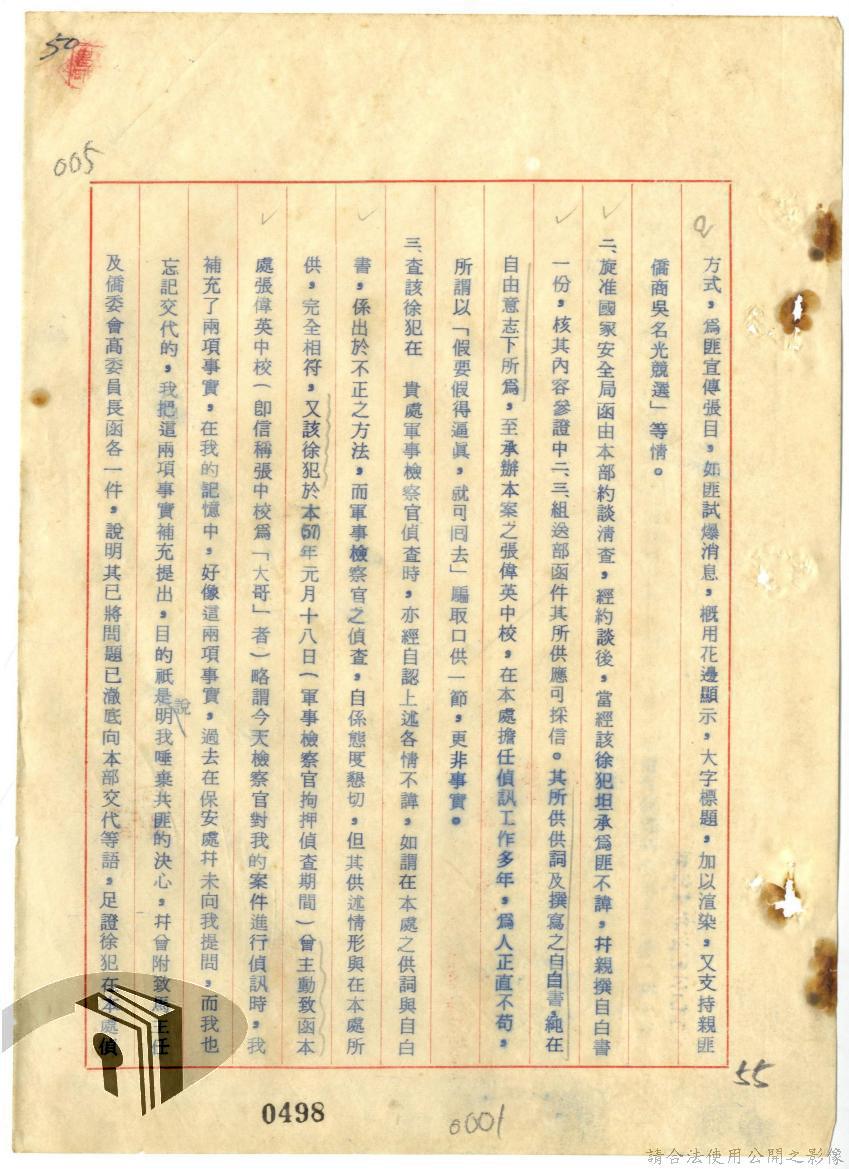 50
005
2
方式，為匪宣傳張目，如匪試爆消息，概用花邊顯示，大字標題，加以渲染，又支持親匪
僑商吳名光競選」等情。
二、旋准國家安全局函由本部約談清查，經約談後，當經該徐犯坦承為匪不諱，并親撰自白書
一份，核其內容參證中二、三組送部函件其所供應可採信。其所供供詞及撰寫之自白書，純在
自由意志下所為，至承辦本案之張偉英中校，在本處擔任偵訊工作多年，為人正直不苟，
所謂以「假要假得逼真，就可回去」騙取口供一節，更非事實。
三、查該徐犯在　貴處軍事檢察官偵查時，亦經自認上述各情不諱，如謂在本處之供詞與自白
書，係出於不正之方法，而軍事檢察官之偵查，自係態度懇切，但其供述情形與在本處所
供，完全相符，又該徐犯於本(57)年元月十八日（軍事檢察官拘押偵查期間）曾主動致函本
處張偉英中校（即信稱張中校為「大哥」者）略謂今天檢察官對我的案件進行偵訊時，我
補充了兩項事實，在我的記憶中，好像這兩項事實，過去在保安處幷未向我提問，而我也
忘記交代的，我把這兩項事實補充提出，目的祇是說明我唾棄共匪的決心，幷曾附致馬主任
及僑委會高委員長函各一件，說明其已將問題已澈底向本部交代等語，足證徐犯在本處偵
55
0498
0001
請合法使用公開之影像